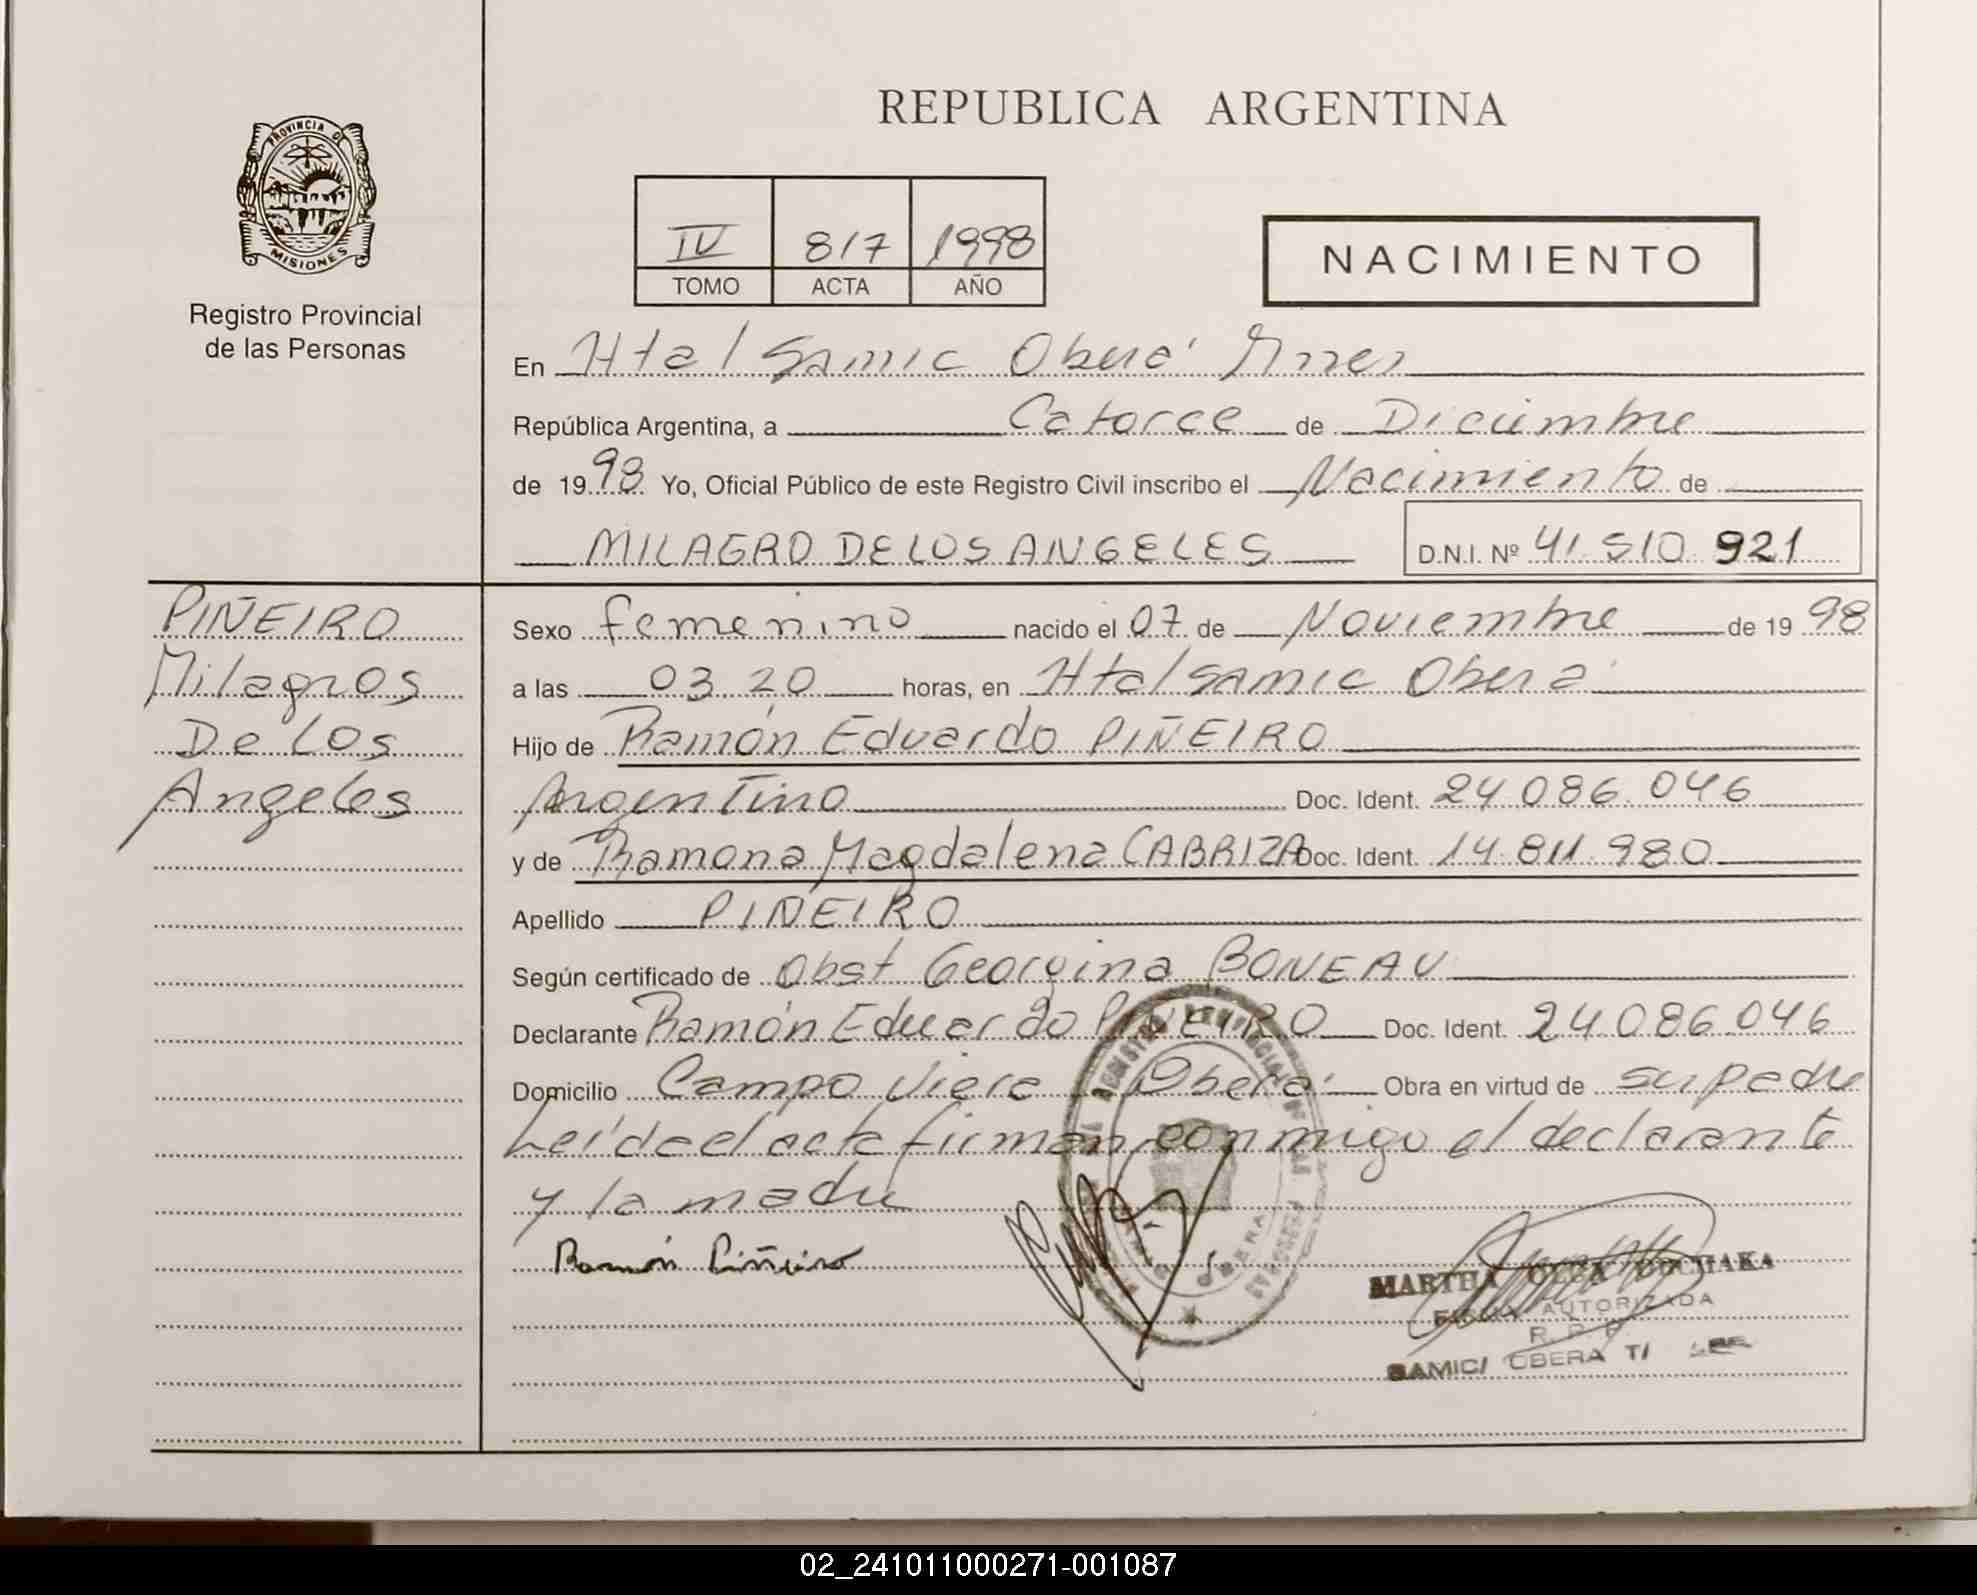 REPUBLICA ARGENTINA
PROVINCIA DE
MISIONES
Registro Provincial
de las Personas
IV 817 1998
TOMO ACTA AÑO
NACIMIENTO
En Htal Samic Oberá Mnes
República Argentina, a Catorce de Diciembre
de 1998 Yo, Oficial Público de este Registro Civil inscribo el Nacimiento de
MILAGRO DE LOS ANGELES D.N.I. Nº 41.510.921
PIÑEIRO
Milagros
De Los
Angeles
Sexo femenino nacido el 07 de Noviembre de 1998
a las 03.20 horas, en Htal Samic Oberá
Hijo de Ramón Eduardo PIÑEIRO
Argentino Doc. Ident. 24.086.046
y de Ramona Magdalena CABRIZA Doc. Ident. 14.811.980
Apellido PIÑEIRO
Según certificado de Obst Georgina BONEAU
Declarante Ramón Eduardo PIÑEIRO Doc. Ident. 24.086.046
Domicilio Campo Viera Oberá Obra en virtud de su padre
Leída el acta firman conmigo el declarante
y la madre
Ramón Piñeiro
MARTHA OLGA
FIRMA AUTORIZADA
R. P. P.
SAMIC/ OBERA
02_241011000271-001087